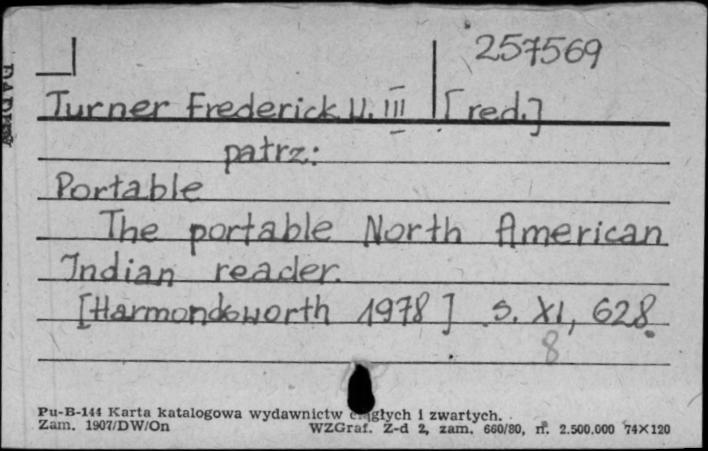 257569
Turner Frederick W. III [red.]
patrz:
Portable
The portable North American
Indian reader.
[Harmondsworth 1978] s. XI, 628.
8
Pu-B-144 Karta katalogowa wydawnictw ciągłych i zwartych.
Zam. 1907/DW/On WZGraf. Z-d 2, zam. 660/80, n. 2.500.000 74×120